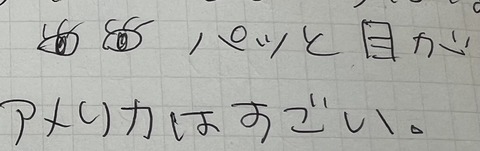 パッと目が
アメリカはすごい。